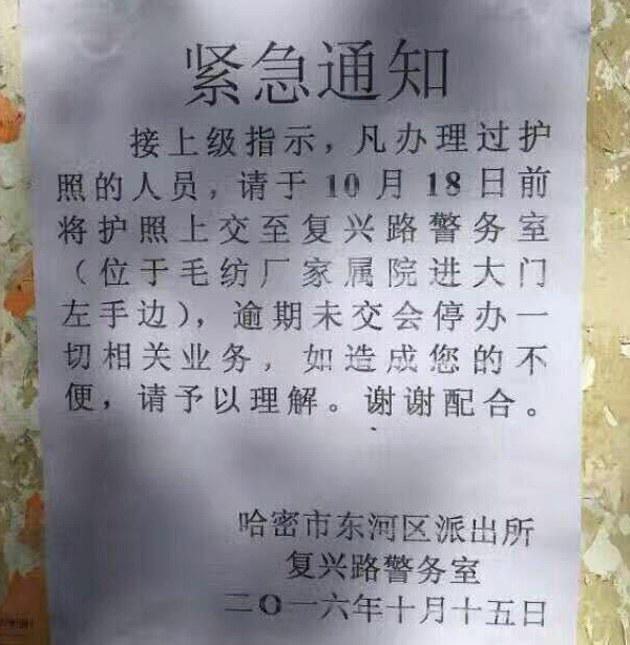 紧急通知
接上级指示，凡办理过护
照的人员，请于10月18日前
将护照上交至复兴路警务室
（位于毛纺厂家属院进大门
左手边），逾期未交会停办一
切相关业务，如造成您的不
便，请予以理解。谢谢配合。
哈密市东河区派出所
复兴路警务室
二O一六年十月十五日